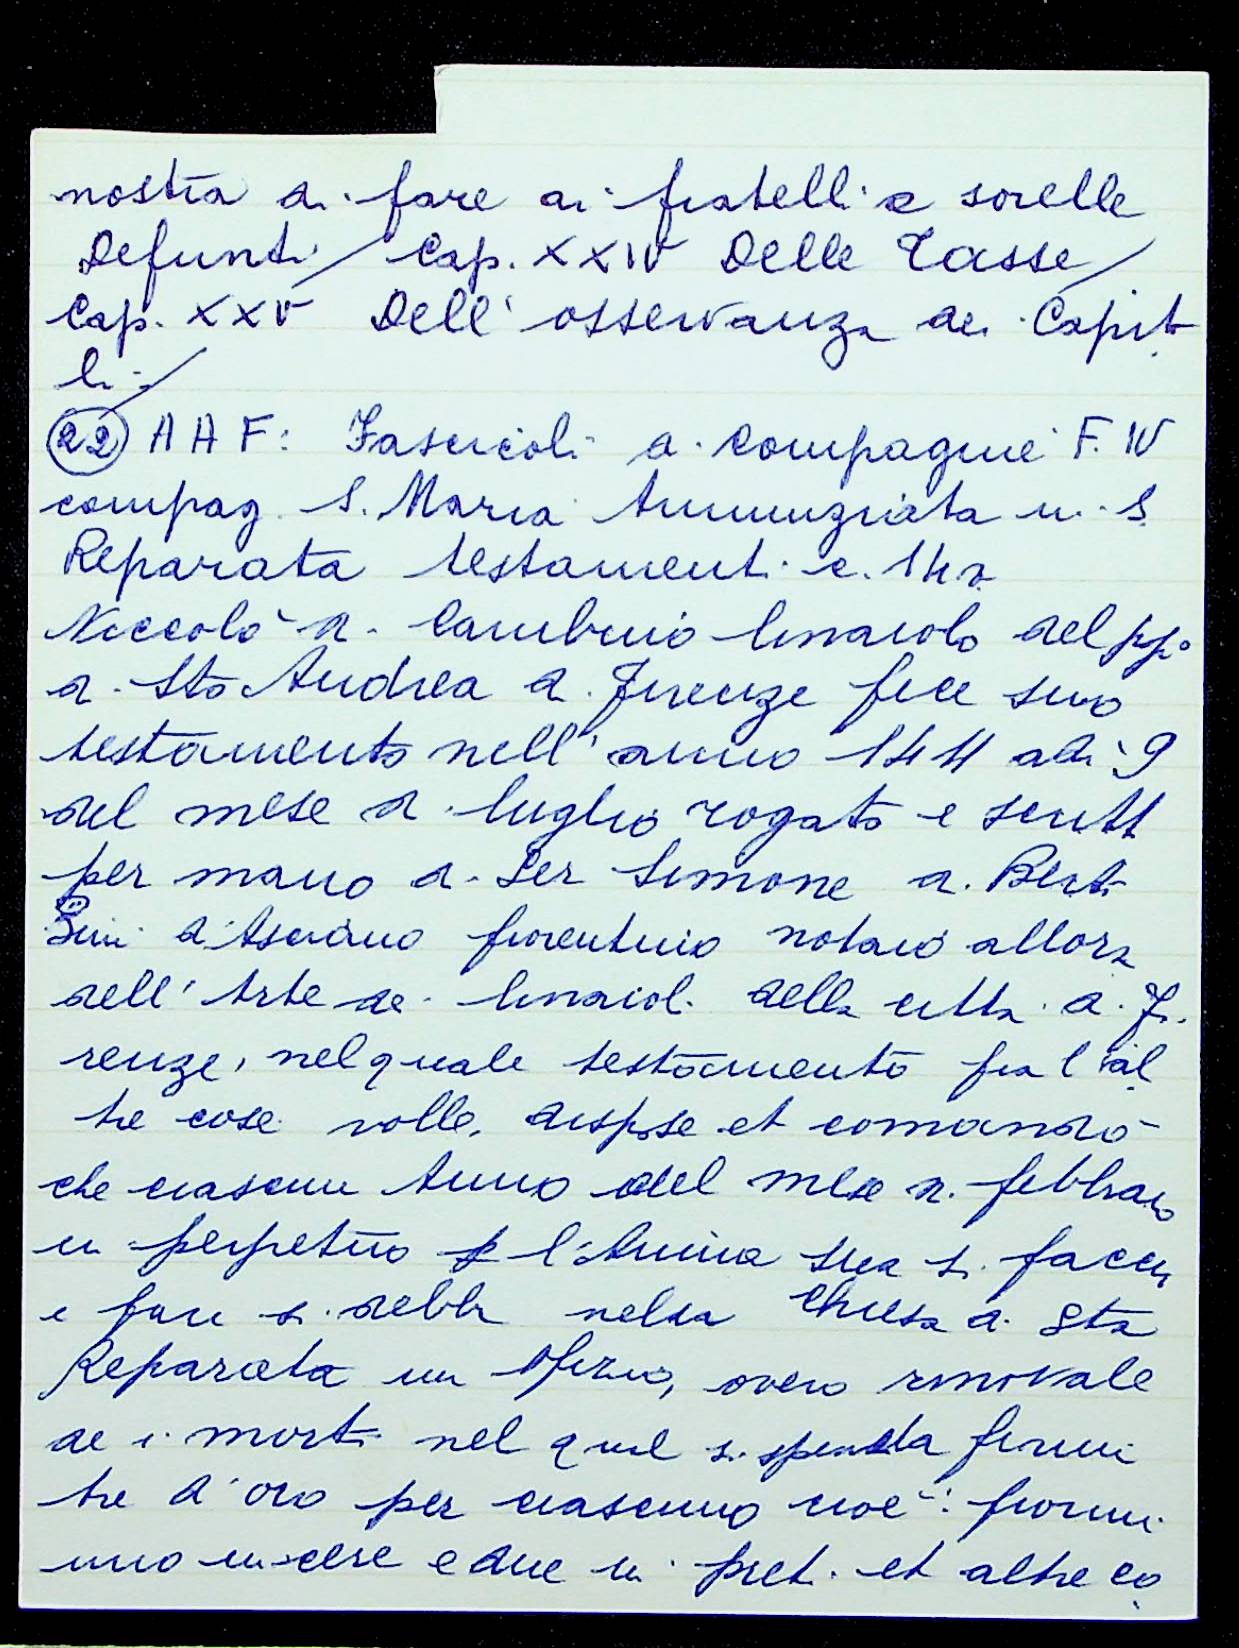 nostra di fare ai fratelli e sorelle
Defunti / Cap. XXIV Delle Tasse /
Cap. XXV Dell'osservanza dei Capito
li /
(22) A A F: Fascicoli di compagnie F. IV
compag. S. Maria Annunziata in S.
Reparata testamenti c. 14r
Niccolò di Cambino linaiolo del ppo
di Sto Andrea di Firenze fece suo
testamento nell'anno 1441 adi 9
del mese di luglio rogato e scritt
per mano di Ser Simone di Berti
Dini d'Asciano fiorentino notaio allora
dell'Arte de linaioli della citta di Fi
renze, nel quale testamento fra l'al
tre cose volle, dispose et comandò
che ciascun Anno del mese di febbraio
in perpetuo p l'Anima sua si faccia
e fare si debba nella Chiesa di Sta
Reparata un Ofizio, overo rinovale
de i morti nel qual si spenda fiorini
tre d'oro per ciascuno cioè: fiorini
uno in cere e due in preti et altre co